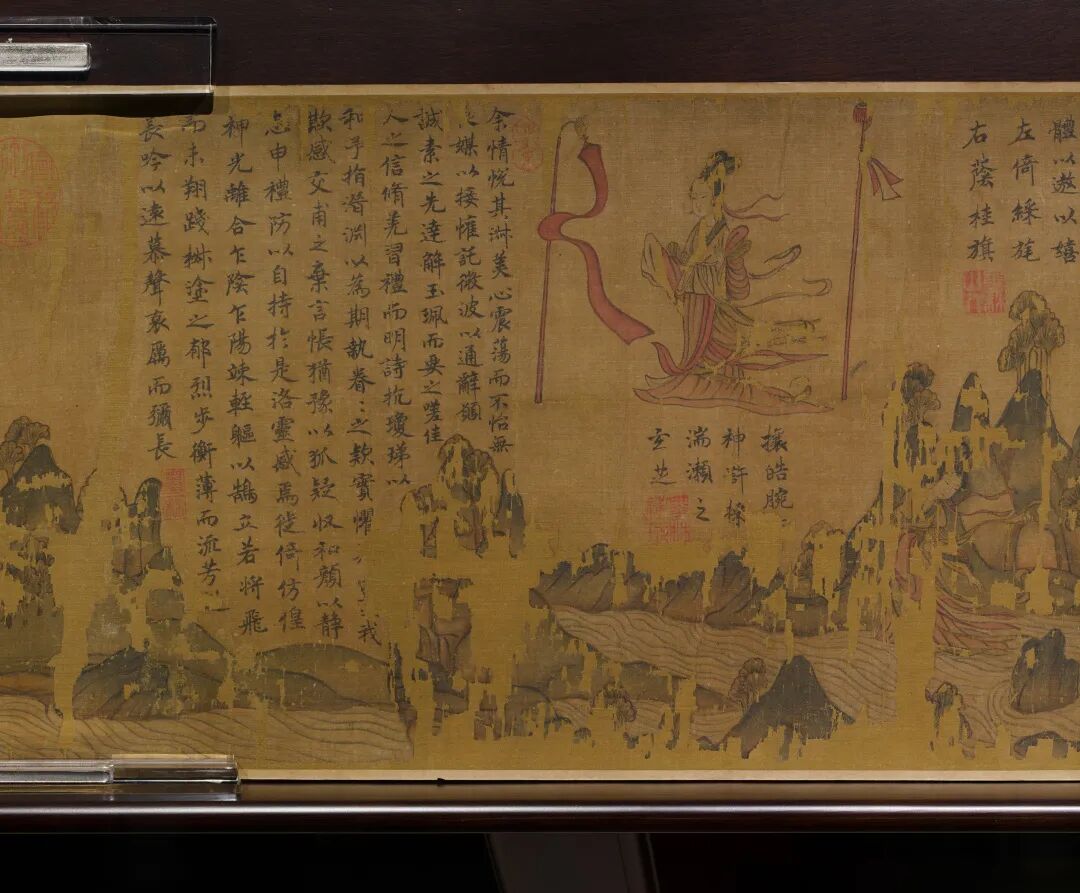 體以遨以嬉
左倚綵旄
右蔭桂旗
攘皓腕
神滸採
湍瀨之
玄芝
余情悅其淑美心震蕩而不怡無
媒以接懽託微波以通辭願
誠素之先達解玉珮而要之嗟佳
人之信脩羌習禮而明詩抗瓊珶以
和予指潛淵以為期執眷〻之款實懼我
欺感交甫之棄言悵猶豫以狐疑收和顏以靜
志申禮防以自持於是洛靈感焉徙倚彷徨
神光離合乍陰乍陽竦輕軀以鵠立若將飛
而未翔踐椒塗之郁烈步衡薄而流芳
長吟以遠慕聲哀厲而彌長